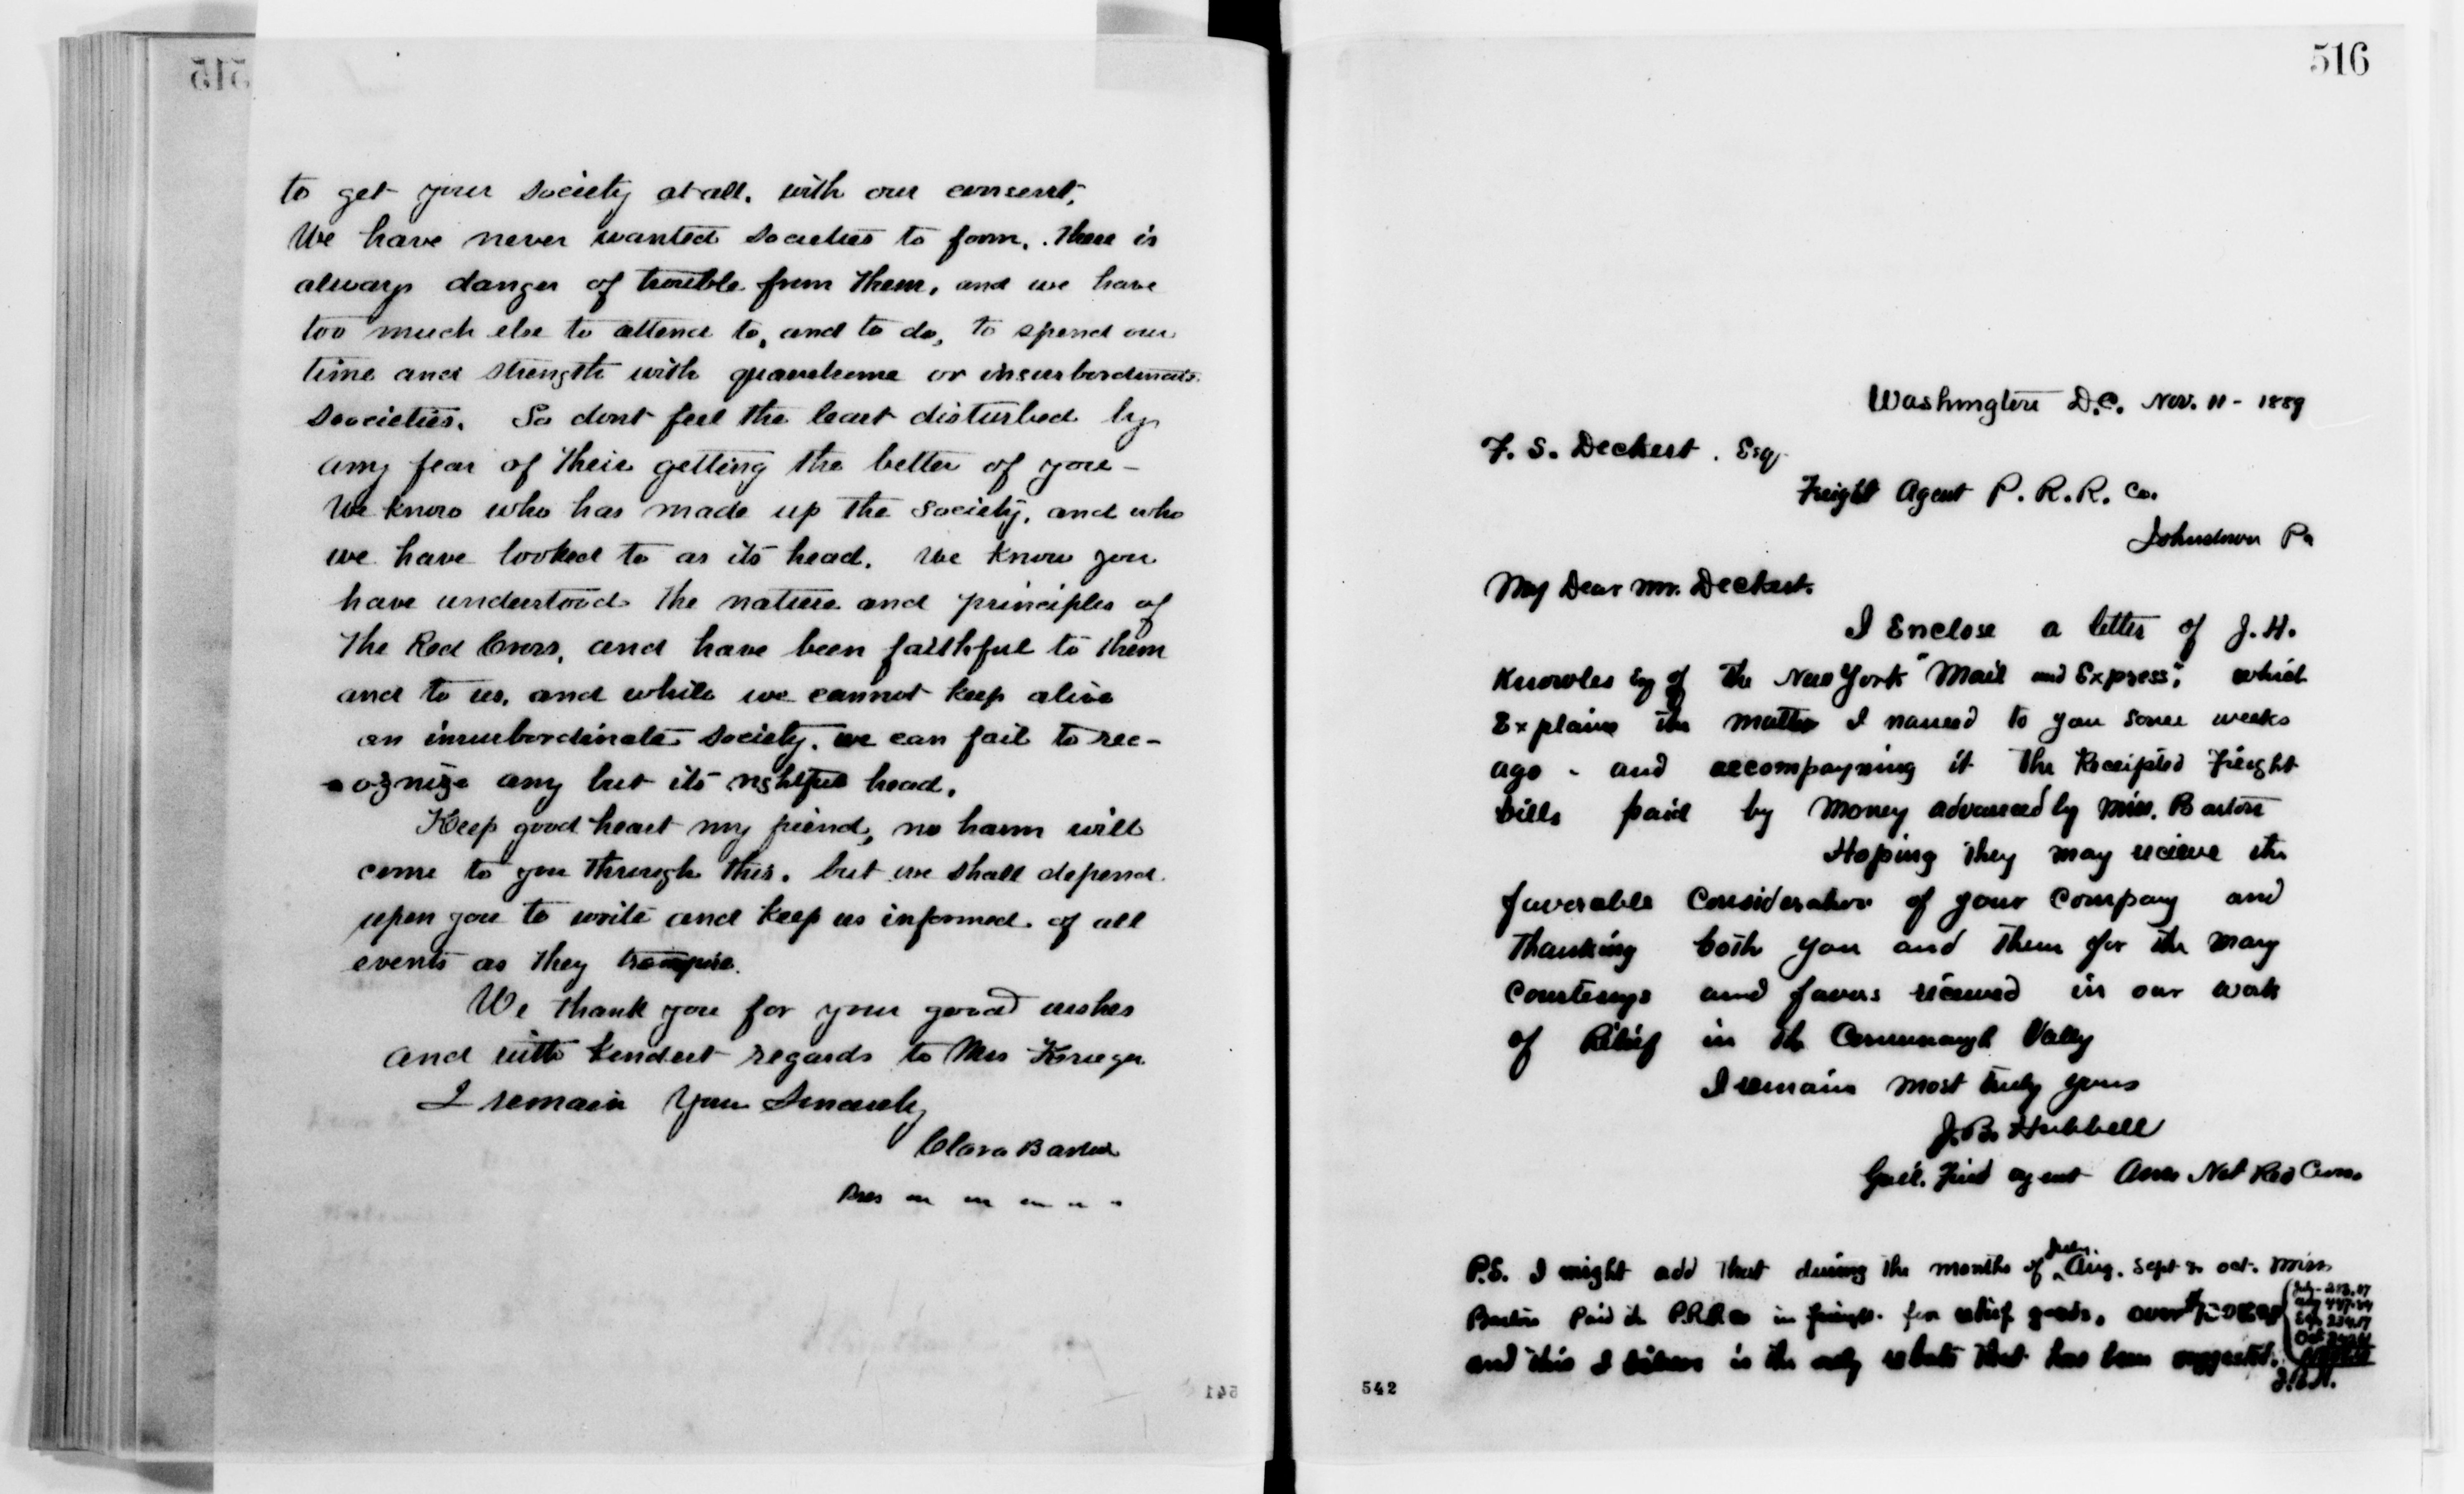 515
to get your society at all. with our consent.
We have never wanted societies to form. There is
always danger of trouble from them, and we have
too much else to attend to, and to do, to spend our
time and strength with quarelsome or insurbordinate
societies. So dont feel the least disturbed by
any fear of their getting the better of you -
We know who has made up the society, and who
we have looked to as its head. We know you
have understood the nature and principles of
the Red Cross, and have been faithful to them
and to us, and while we cannot keep alive
an insurbordinate society. we can fail to rec-
ognize any but its rightful head.
Keep good heart my friend, no harm will
come to you through this. but we shall depend
upon you to write and keep us informed of all
events as they transpire.
We thank you for your good wishes
and with kindest regards to Mrs Krieger
I remain Your Sincerely
Clara Barton
Pres " " " " "
541
516
Washington D.C. Nov. 11 - 1889
F. S. Deckert. Esq
Freight Agent P. R. R. Co.
Johnstown Pa
My Dear Mr. Deckert.
I Enclose a letter of J. H.
Knowles Esq of The New York "Mail and Express", which
Explains the matter I named to you some weeks
ago - and accompayning it the Receipted Freight
bills paid by money advanced by Miss. Barton
Hoping they may recieve the
faverable Consideration of your Company and
Thanking both you and them for the many
Courtesys and favors recieved in our work
of Relief in the Conemaugh Valley
I remain most truly yours
J. B. Hubbell
Gen'l. Field agent Amer Nat Red Cross
P.S. I might add that during the months of July. Aug. Sept & Oct. Miss
Barton Paid the P.R.R Co in freight for relief goods, over
and this I believe is the only rebate that has been suggested.
J.B.H.
542